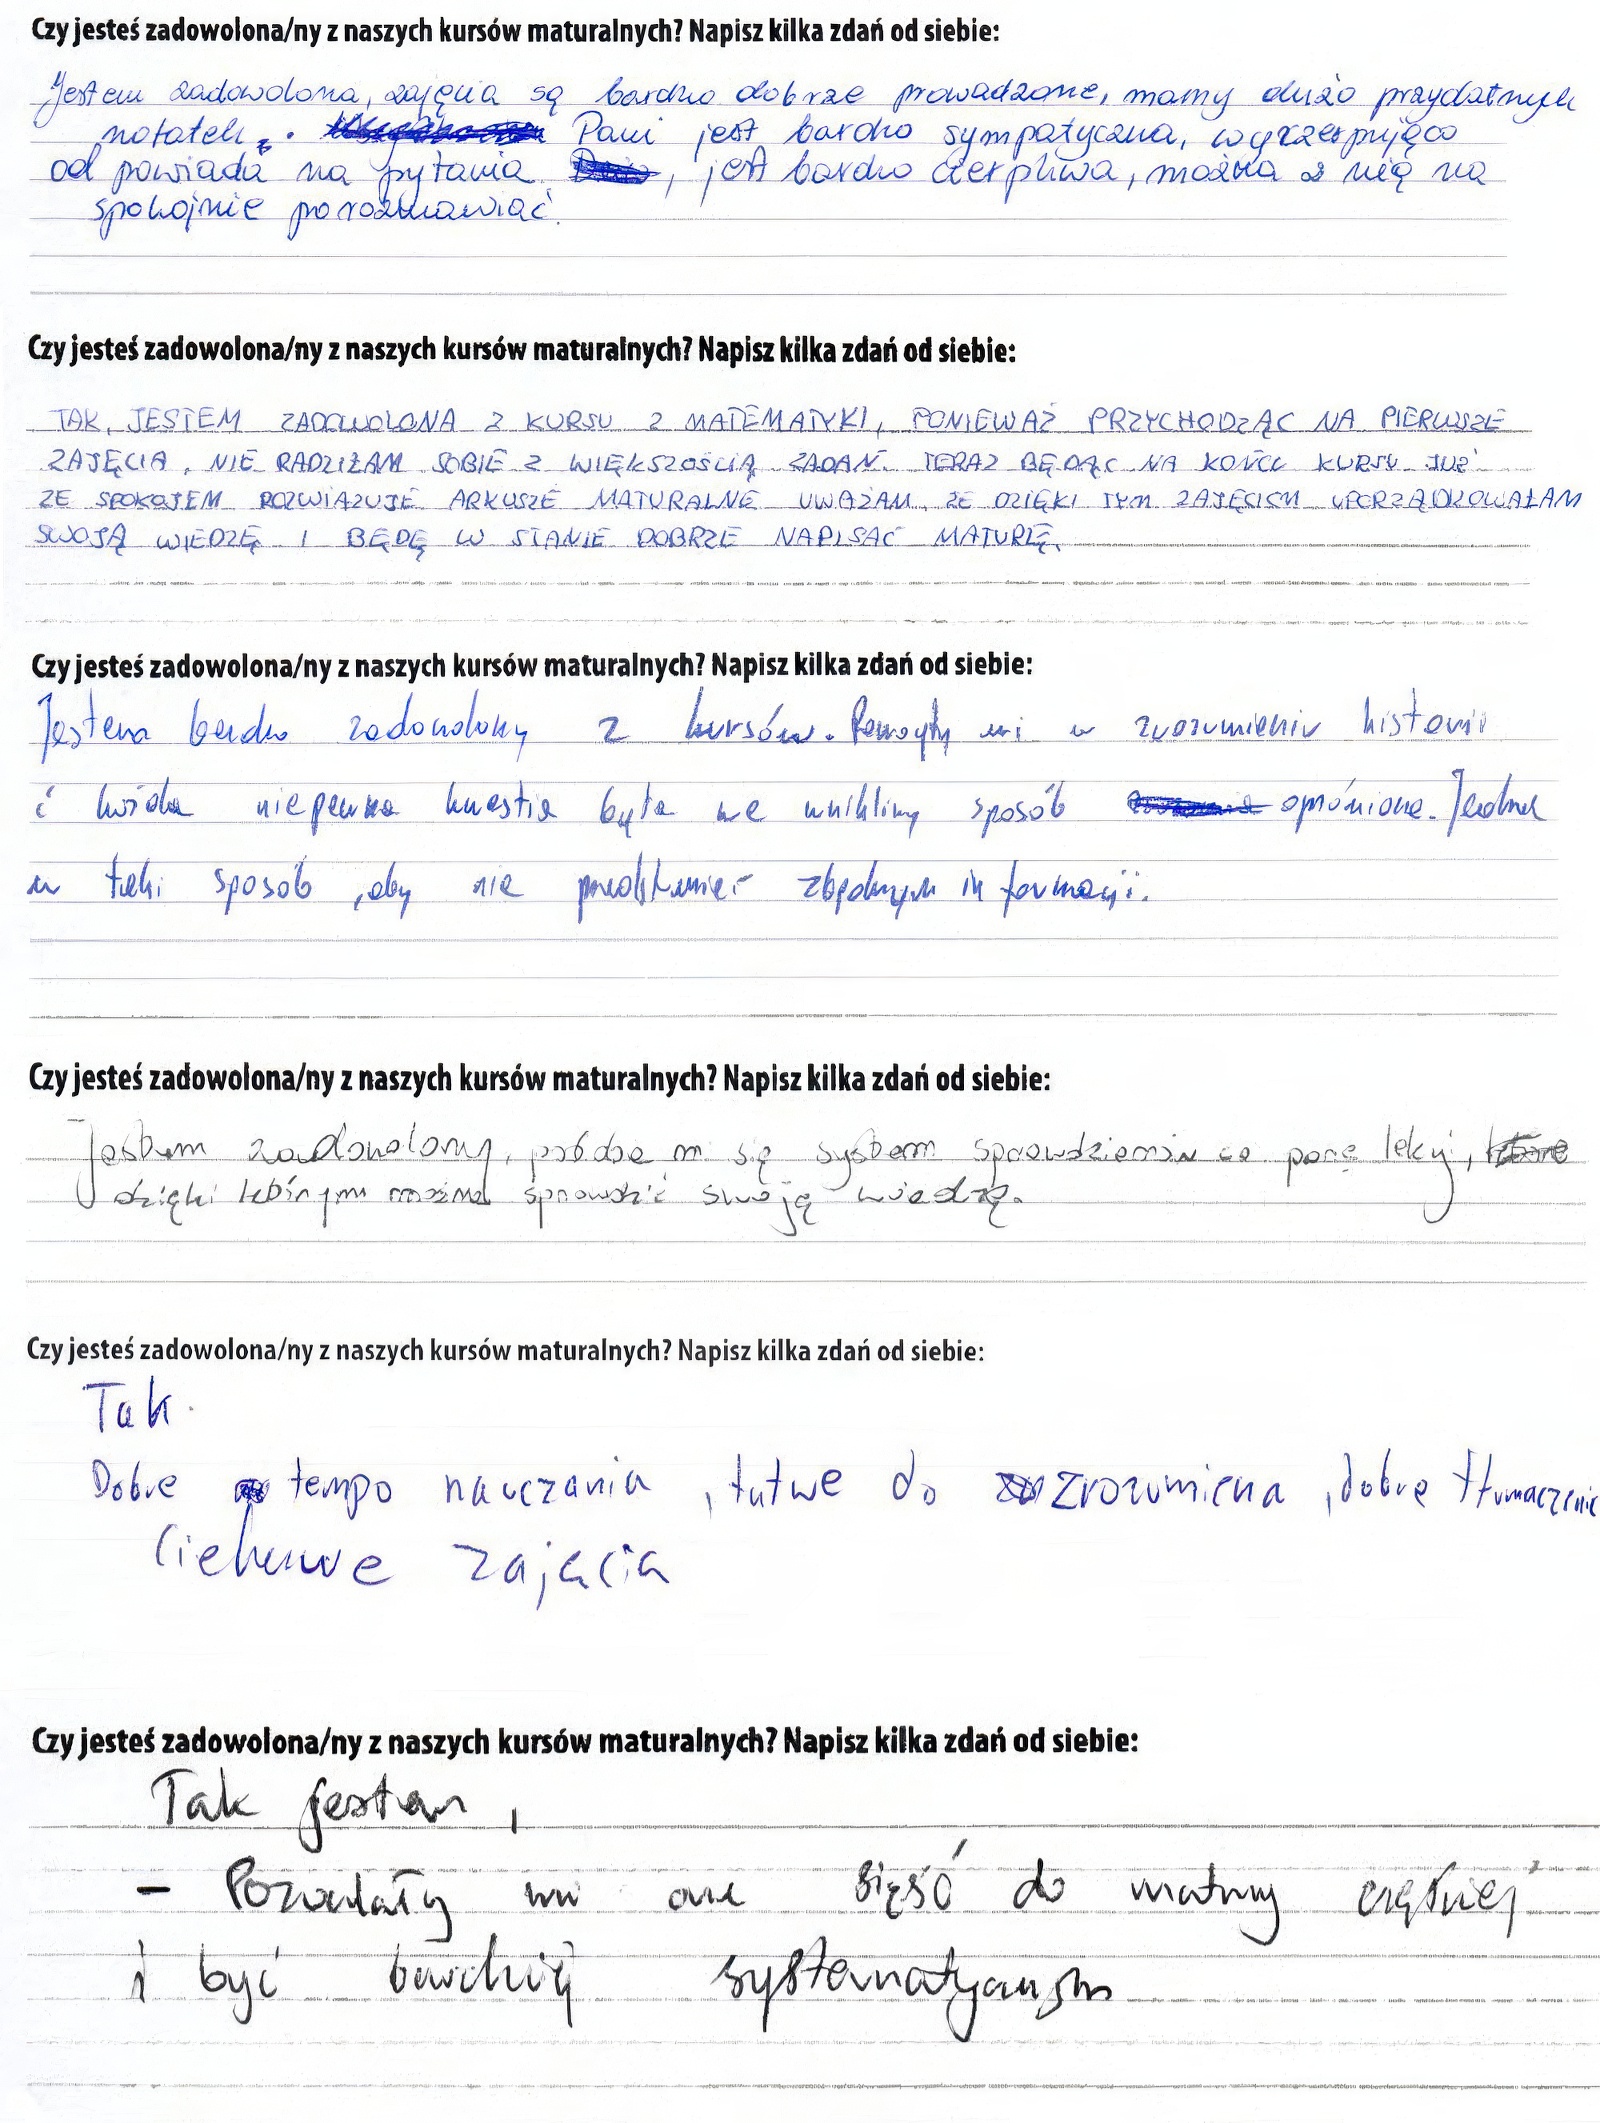 Czy jesteś zadowolona/ny z naszych kursów maturalnych? Napisz kilka zdań od siebie:
Jestem zadowolona, zajęcia są bardzo dobrze prowadzone, mamy dużo przydatnych
notatek. Pani jest bardzo sympatyczna, wyczerpująco
odpowiada na pytania, jest bardzo cierpliwa, można z nią na
spokojnie porozmawiać.
Czy jesteś zadowolona/ny z naszych kursów maturalnych? Napisz kilka zdań od siebie:
TAK, JESTEM ZADOWOLONA Z KURSU Z MATEMATYKI, PONIEWAŻ PRZYCHODZĄC NA PIERWSZE
ZAJĘCIA, NIE RADZIŁAM SOBIE Z WIĘKSZOŚCIĄ ZADAŃ. TERAZ BĘDĄC NA KOŃCU KURSU JUŻ
ZE SPOKOJEM ROZWIĄZUJĘ ARKUSZE MATURALNE. UWAŻAM, ŻE DZIĘKI TYM ZAJĘCIOM UPORZĄDKOWAŁAM
SWOJĄ WIEDZĘ I BĘDĘ W STANIE DOBRZE NAPISAĆ MATURĘ.
Czy jesteś zadowolona/ny z naszych kursów maturalnych? Napisz kilka zdań od siebie:
Jestem bardzo zadowolony z kursów. Pomogły mi w zrozumieniu historii
i każda niepewna kwestia była we wnikliwy sposób omówiona. Jednak
w taki sposób, aby nie zbędnych informacji.
Czy jesteś zadowolona/ny z naszych kursów maturalnych? Napisz kilka zdań od siebie:
Jestem zadowolony, podoba mi się system sprawdzianów co parę lekcji,
dzięki którym można sprawdzić swoją wiedzę.
Czy jesteś zadowolona/ny z naszych kursów maturalnych? Napisz kilka zdań od siebie:
Tak.
Dobre tempo nauczania, łatwe do zrozumiena, dobre tłumaczenie
Ciekawe zajęcia
Czy jesteś zadowolona/ny z naszych kursów maturalnych? Napisz kilka zdań od siebie:
Tak jestem,
- Pozwalały mi one siąść do matury częściej
i być bardziej systematycznym